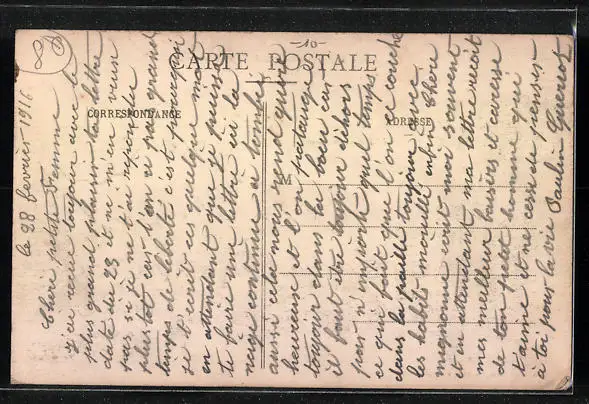 -10-
CARTE POSTALE
CORRESPONDANCE
ADRESSE
M
le 28 fevrier 1916
Cheri petite Femme
J'ai reçue toujour avec le
plus grand plaisir ta lettre
date du 23 et ne m'en veux
pas si je ne t'ai repondu
plus tot car l'on ai pas grand
temps de liberté c'est pourquoi
je t'ecrit ces quelque mot
en attendant que je puisse
te faire une lettre ici la
neige continue a tomber
aussi cela nous rend guère
heureux et l'on patauge
toujour dans la boue car
il faut être toujour dehors
par n'importe quel temps
ce qui fait que l'on couche
dans la paille toujour avec
les habits mouillé enfin Cheri
mignonne ecrit moi souvent
et en attendant ma lettre reçoit
mes meilleur baisers et caresse
de ton petit homme qui
t'aime et ne cesse de penser
a toi pour la vie Paulin